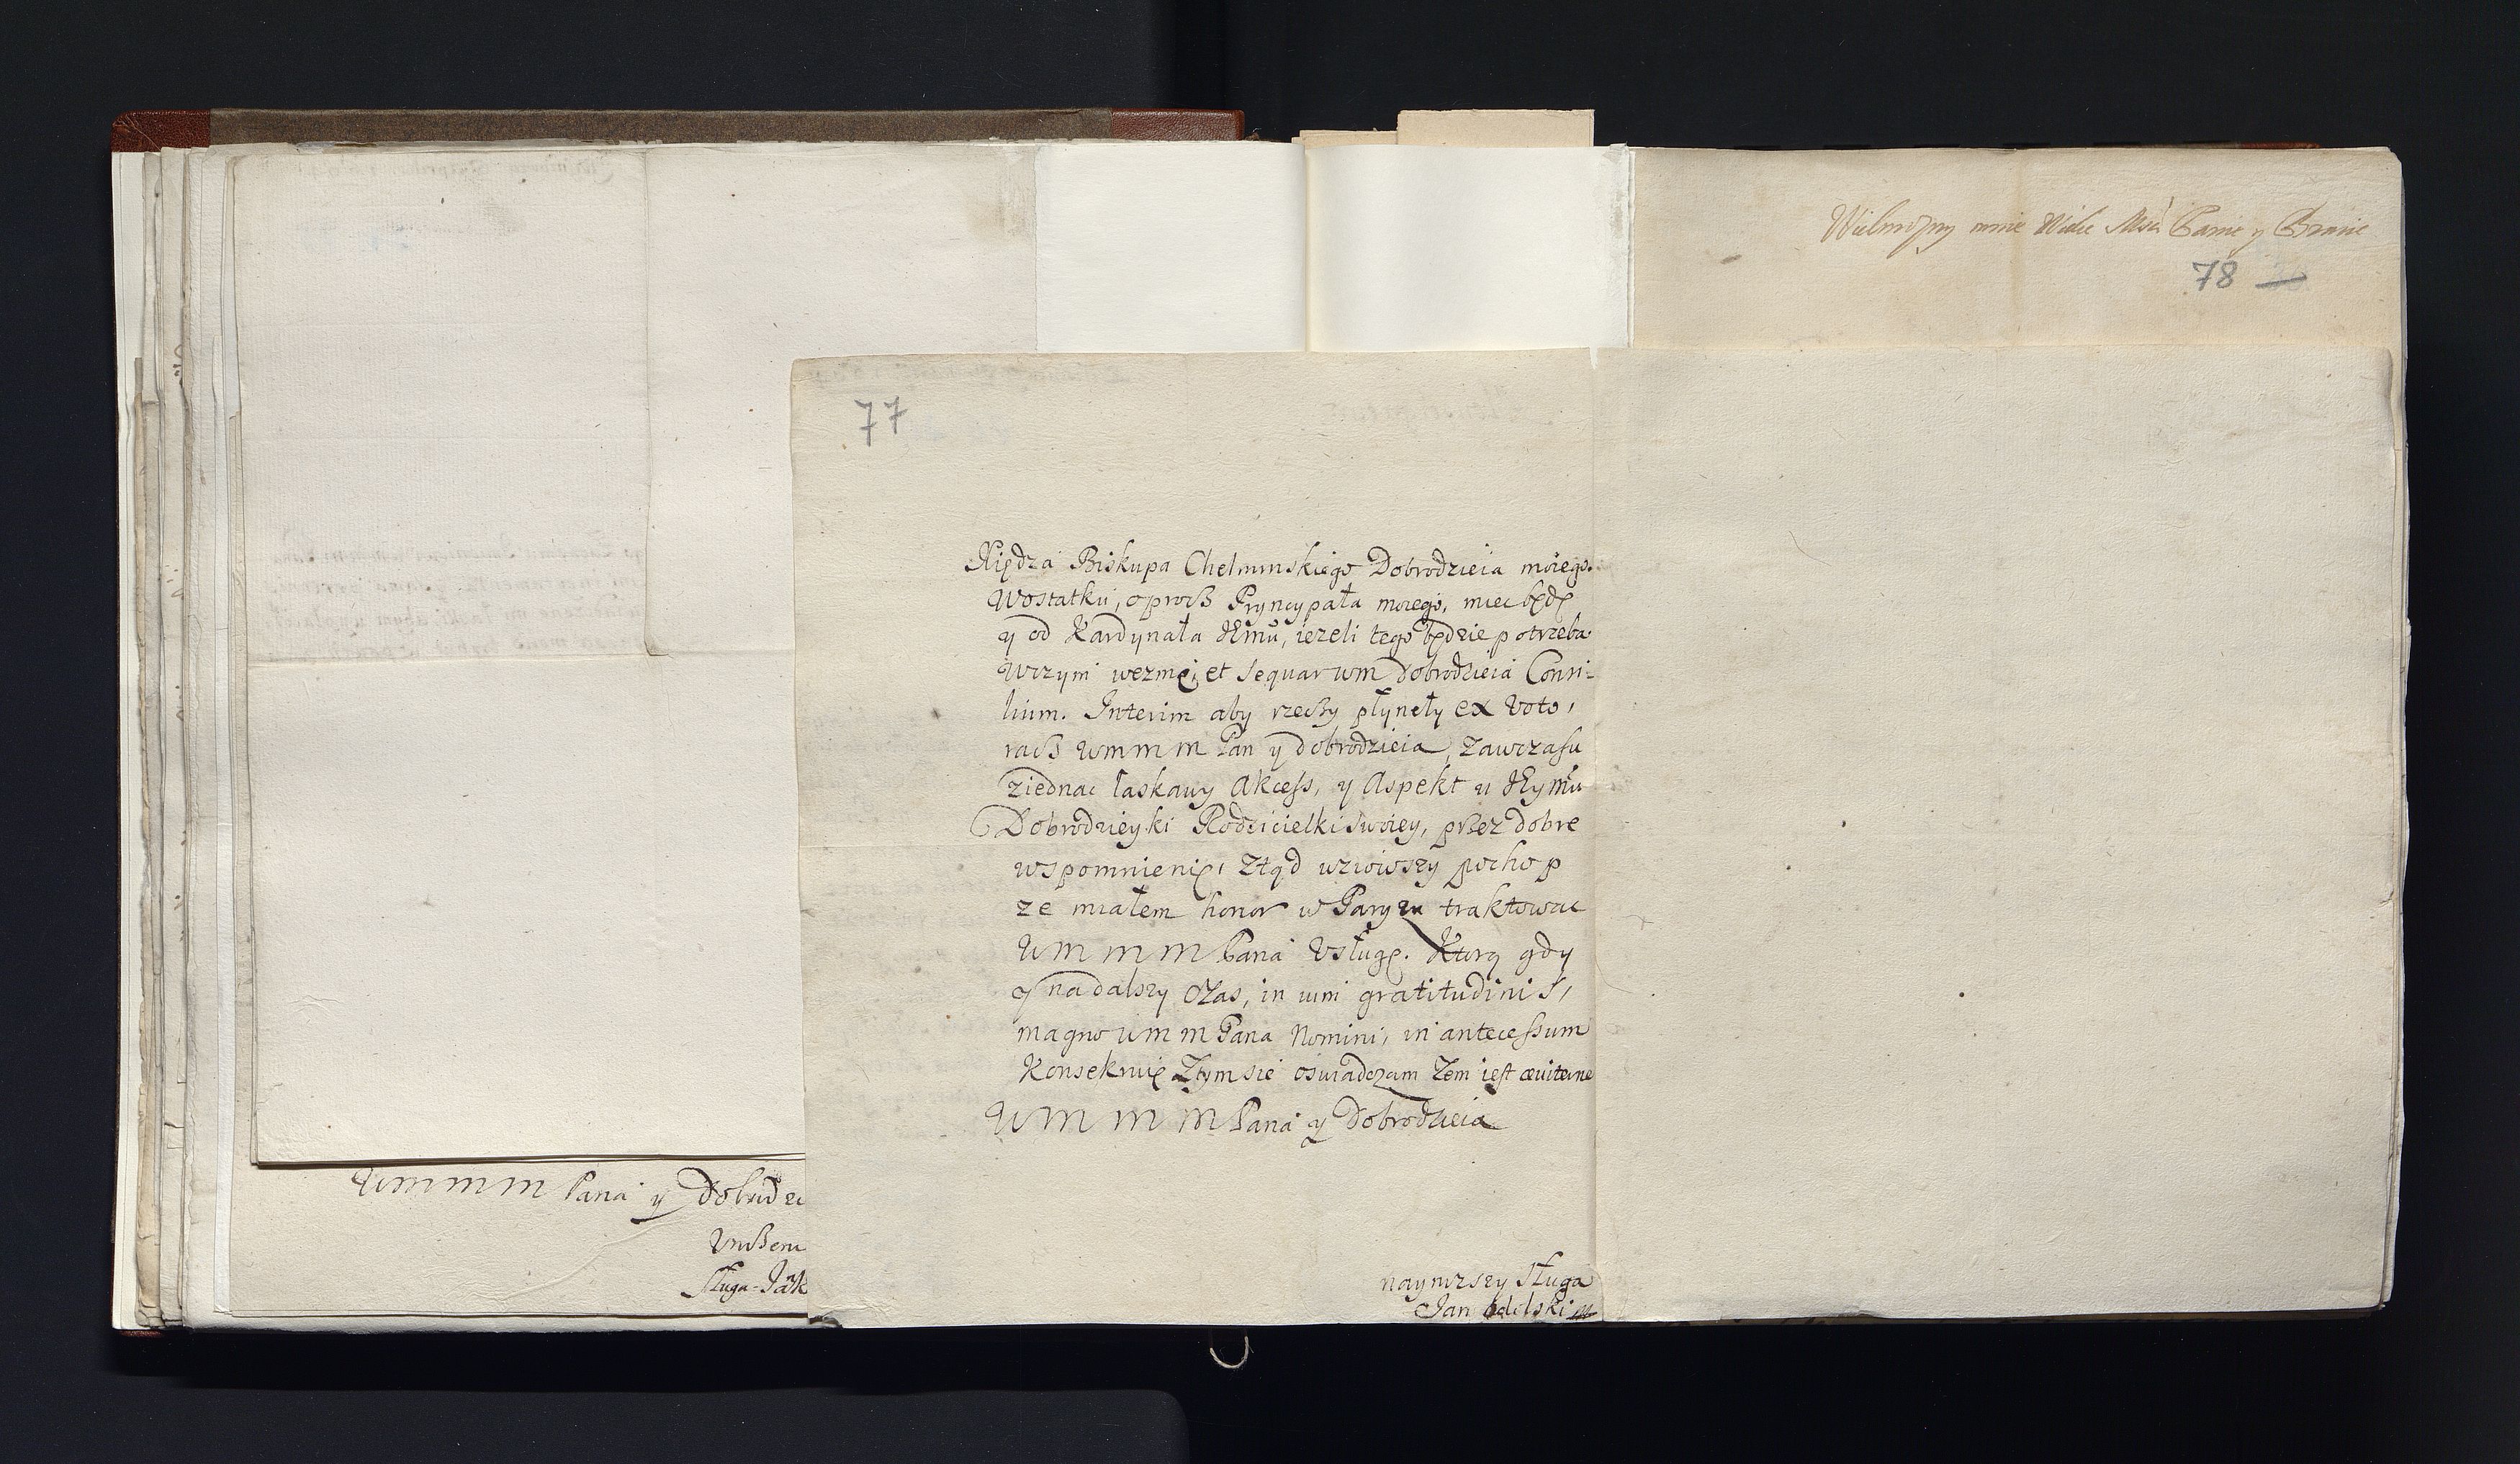 Wielmożny mnie Wielce Mści Panie y Bracie
78
77
Xiędza Biskupa Chelminskiego Dobrodzieia moiego.
Wostatku, oprocz Pryncypała moiego, miec będę
y od Kardynała JEmu, iezeli tego będzie potrzeba.
Wczym wezmę, et sequar wm Dobrodzieia Consi-
lium. Interim aby rzeczy płynęły ex Voto,
racz wmmm Pan y Dobrodzieia, zawczasu
ziednac łaskawy Akcess, y Aspekt u JEymu
Dobrodzieyki Rodzicielki swoiey, przez dobre
wspomnienie, ztąd wziowszy pochop
ze miałem honor w Paryzu traktowac
Wmmm Pana Usługę. Ktorą gdy
y na dalszy czas, in vim gratitudinis,
magno wmm Pana Nomini, in antecessum
Konsekruię Ztym sie oswiadczam Zem iest æviterne
WmmmPana y Dobrodzieia
nayniszszy Sługa
Jan
Wmmm Pana y Dobrodzi
Unizeni
Sługa Jan K